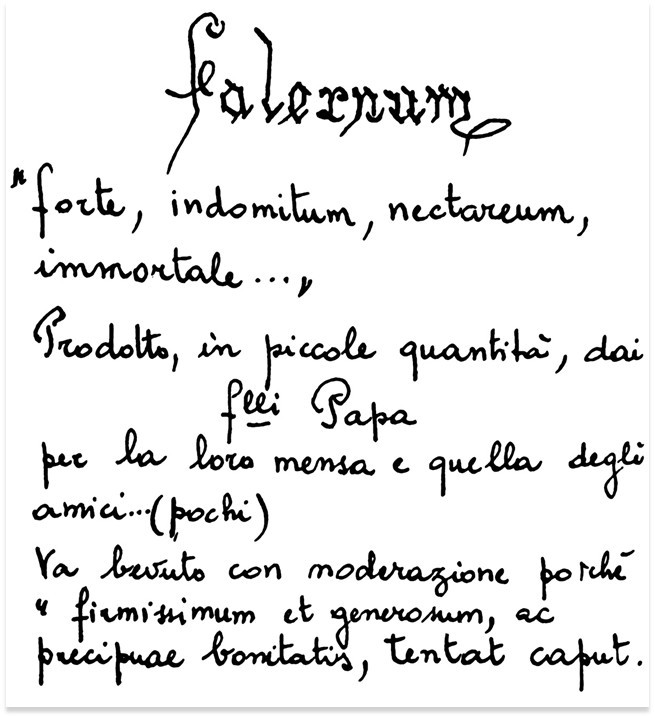 falernum
"forte, indomitum, nectareum,
immortale...„
Prodotto, in piccole quantità, dai
f.lli Papa
per la loro mensa e quella degli
amici...(pochi)
Va bevuto con moderazione poichè
"firmissimum et generosum, ac
precipuae bonitatis, tentat caput.